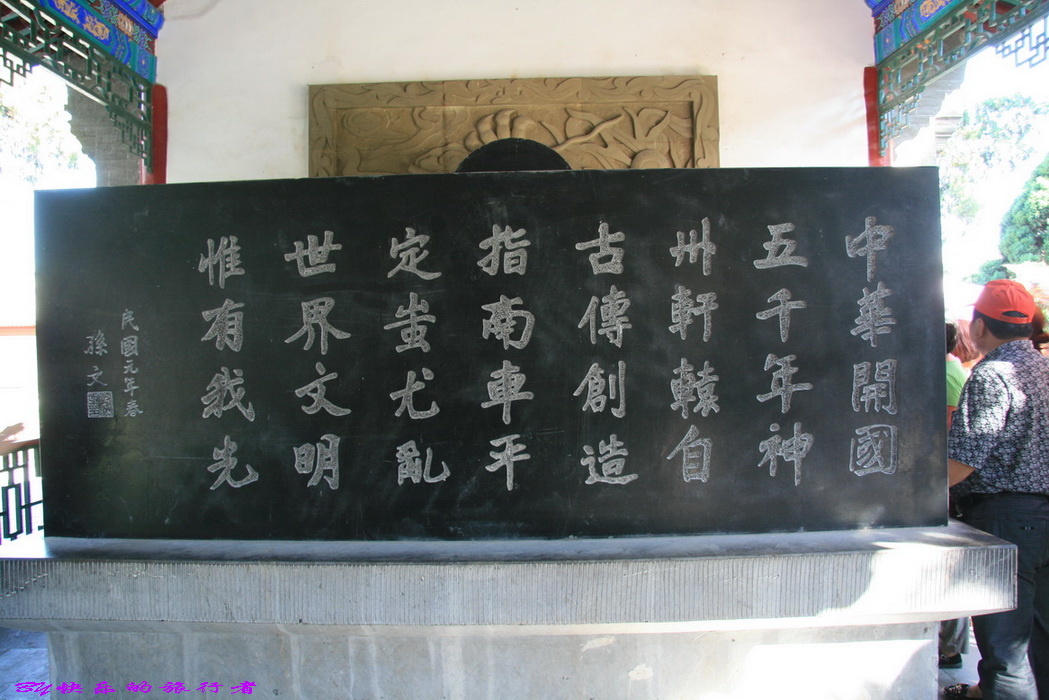 中華開國
五千年神
卅軒轅自
古傳創造
指南車平
定蚩尤亂
世界文明
惟有我光
民國元年春
孫文
By快乐的旅行者